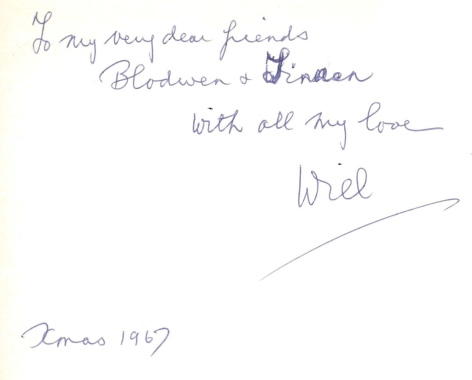 To my very dear friends
Blodwen &
with all my love
Will
Xmas 1967